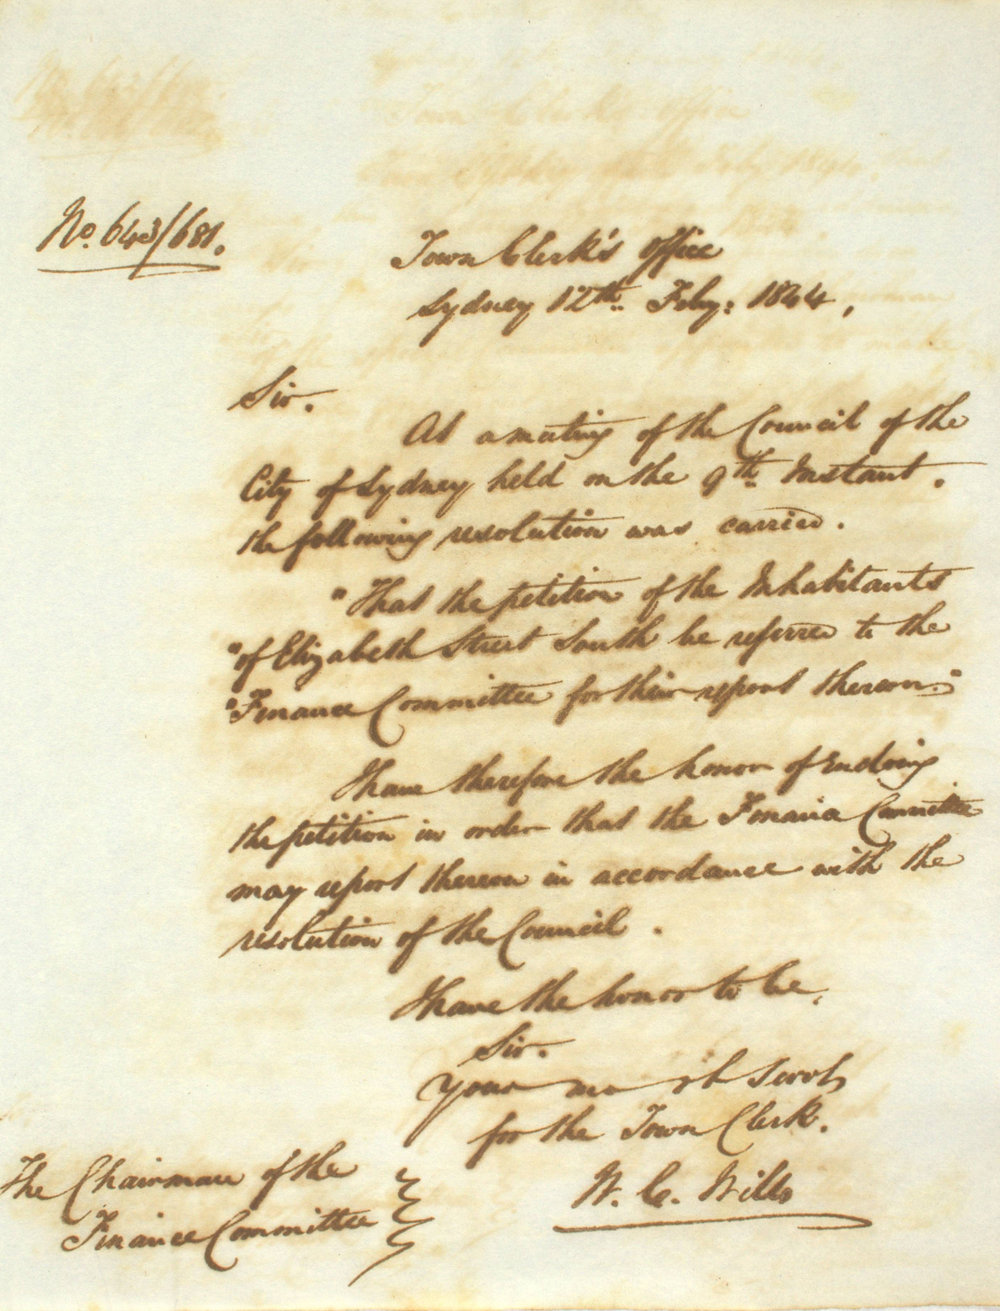 No. 643/681.
Town Clerk's Office
Sydney 12th. Feby: 1844,
Sir.
At a meeting of the Council of the
City of Sydney held on the 9th Instant.
the following resolution was carried.
"That the petition of the Inhabitants
"of Elizabeth Street South be referred to the
"Finance Committee for their report thereon."
I have therefore the honor of Enclosing
the petition in order that the Finance Committee
may report thereon in accordance with the
resolution of the Council.
I have the honor to be,
Sir.
Your mo obt Servt
for the Town Clerk.
W. C. Wills
The Chairman of the
Finance Committee